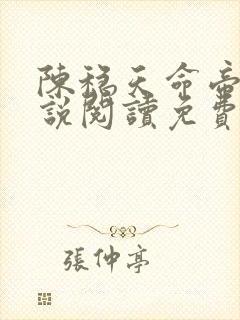 陳稳天命帝
說閱讀免費
張仲亭